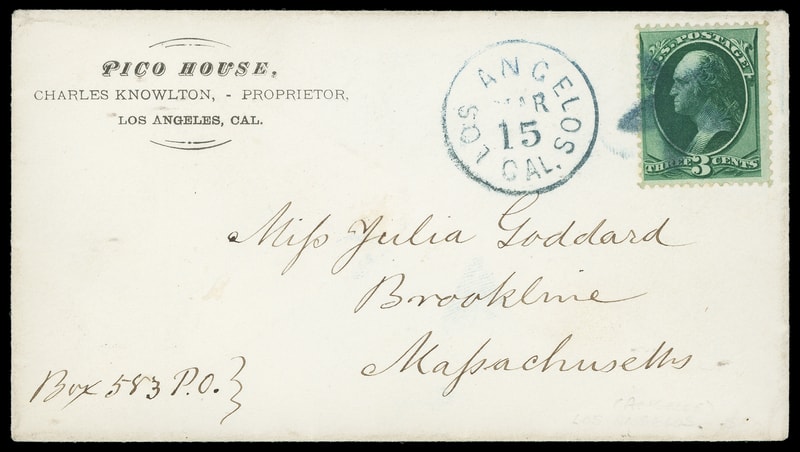 PICO HOUSE,
CHARLES KNOWLTON, - PROPRIETOR,
LOS ANGELES, CAL.
LOS ANGELOS
MAR
15
CAL.
U.S. POSTAGE
THREE 3 CENTS
Miſs Julia Goddard
Brookline
Maſsachusetts
Box 583 P.O.